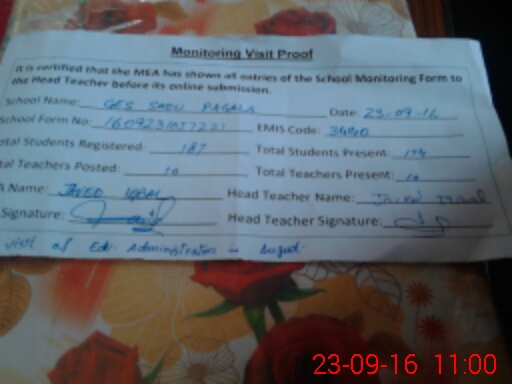 Monitoring Visit Proof
It is certified that the MEA has shown all entries of the School Monitoring Form to
the Head Teacher before its online submission.
School Name: GES Date: 23-09-16
School Form No: EMIS Code:
Total Students Registered: 187 Total Students Present: 174
Total Teachers Posted: 10 Total Teachers Present: 10
A Name: JAVED IQBAL Head Teacher Name:
Signature: Head Teacher Signature:
visit of Edu. Administrators in August.
23-09-16 11:00